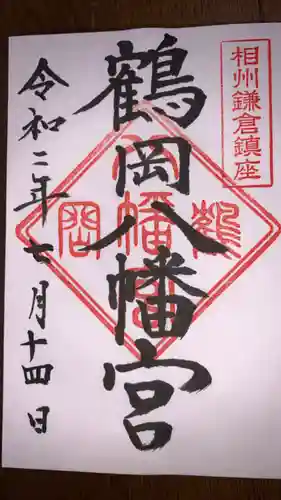 相州鎌倉鎮座
鶴岡八幡宮
令和二年七月十四日